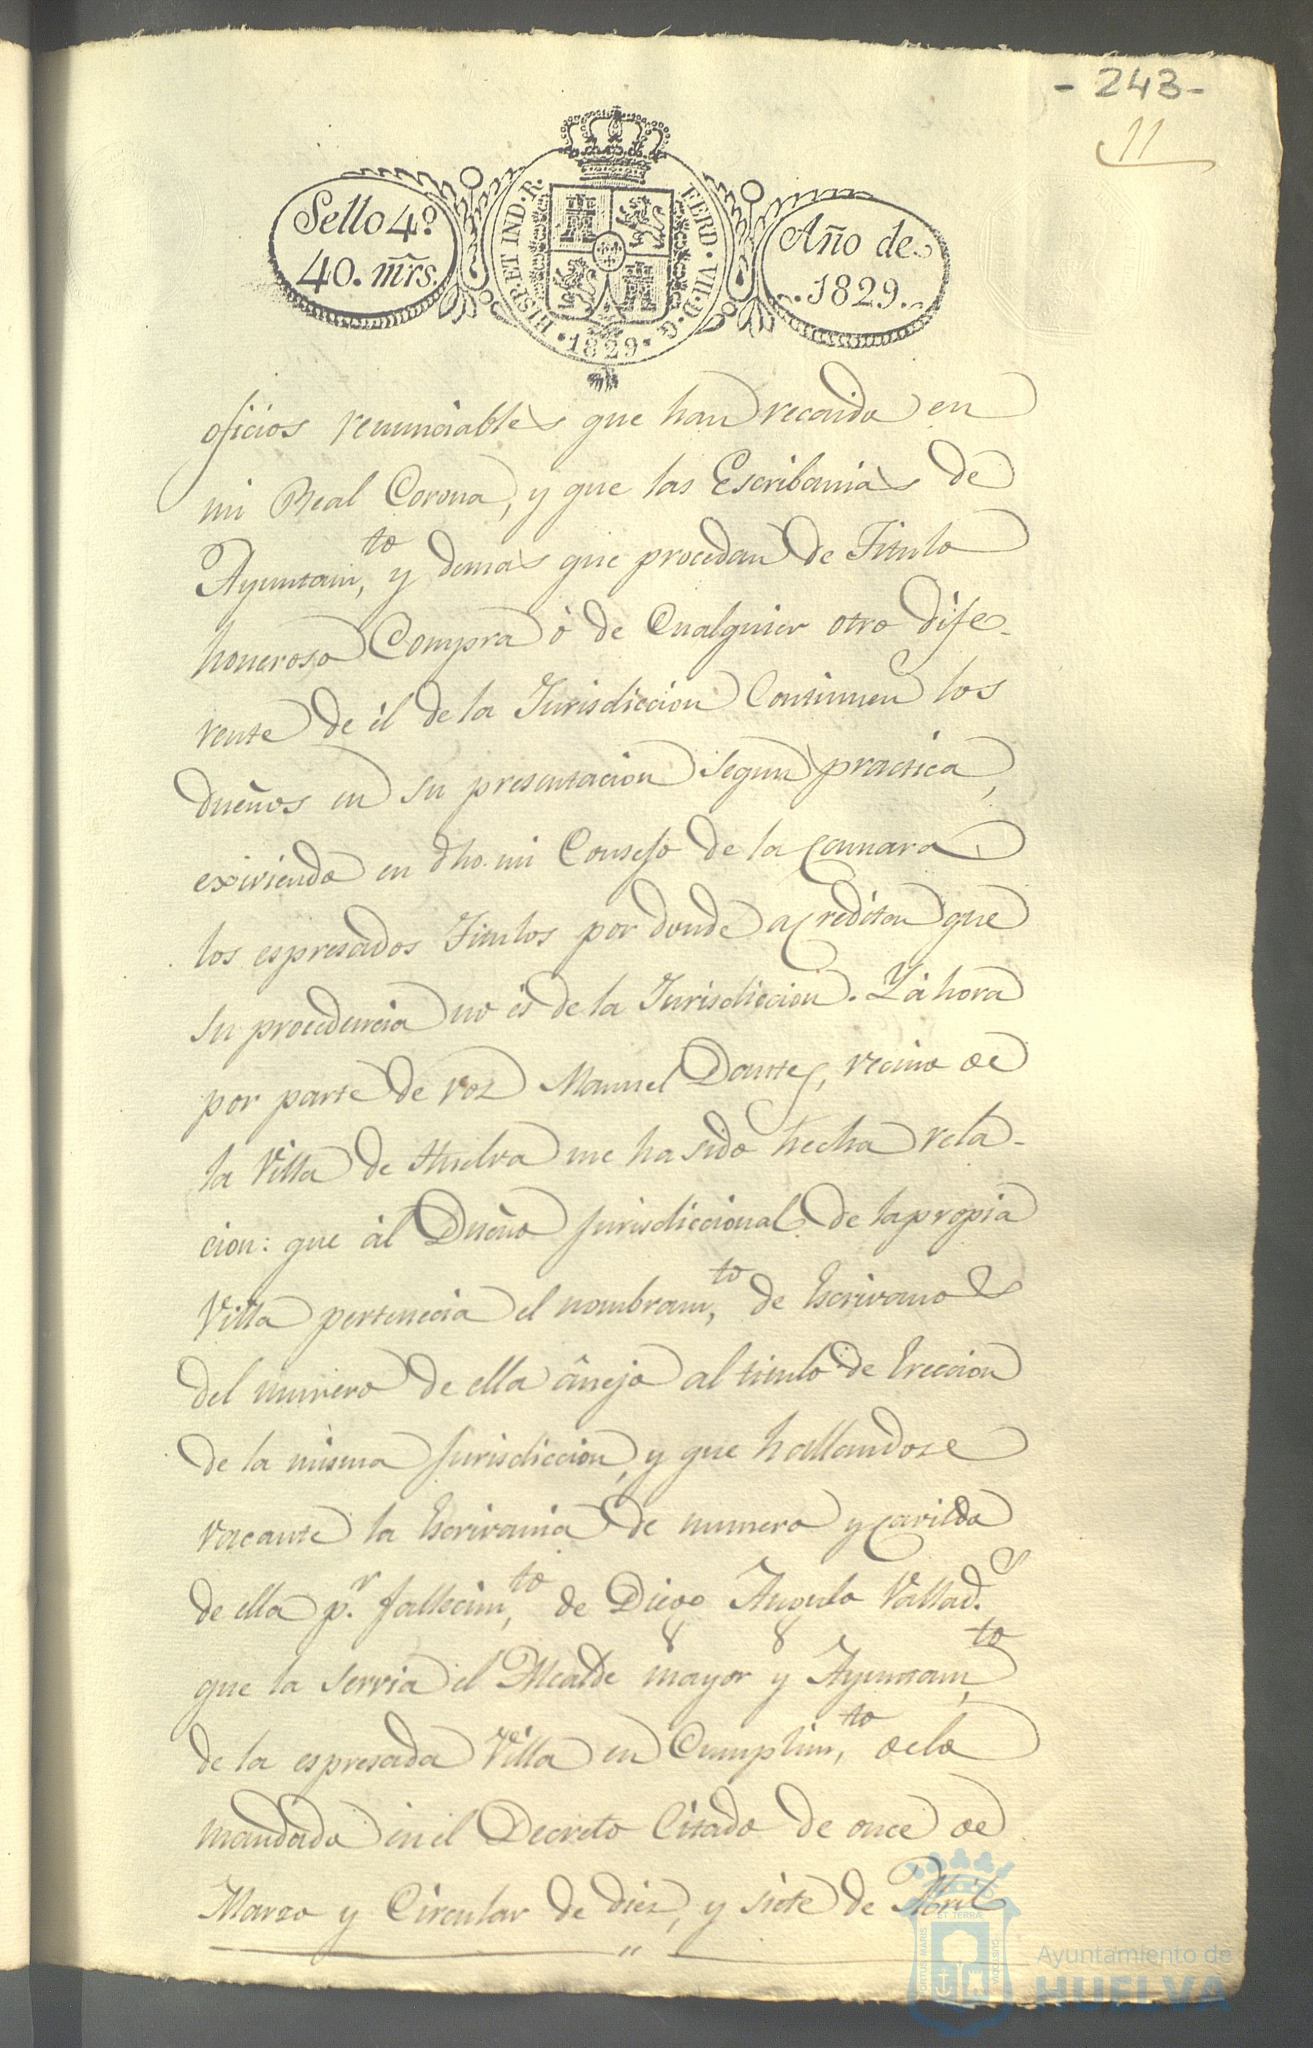 - 243 -
11
Sello 4º
40. mrs.
HISP. ET IND. R. FERD. VII. D. G.
1829
Año de
1829.
oficios renunciables que han recaido en
mi Real Corona, y que las Escribanias de
Ayuntam,to y demas que procedan de Titulo
honeroso Compra ò de Cualquier otro dife-
rente de él de la Jurisdiccion Continuen los
dueños en su presentacion segun practica,
exiviendo en dho. mi Consejo de la Camara
los espresados Titulos por donde acrediten que
su procedencia no és de la Jurisdiccion. Y áhora
por parte de voz Manuel Dantes, vecino de
la Villa de Huelva me ha sido hecha rela-
cion: que ál Dueño Jurisdiccional de la propia
Villa pertenecia el nombram,to de Escrivanos
del numero de ella ânejo al titulo de Ereccion
de la misma Jurisdiccion, y que hallandose
vacante la Escrivania de numero y Cavildo
de ella p.r fallecim,to de Diego Angulo Vallad.s
que la servia el Alcalde mayor y Ayuntam,to
de la espresada Villa en Cumplim,to de lo
mandado en el Decreto Citado de once de
Marzo y Circular de diez, y siete de Abril
PORTUS MARIS ET TERRÆ CUSTODIA
Ayuntamiento de
HUELVA